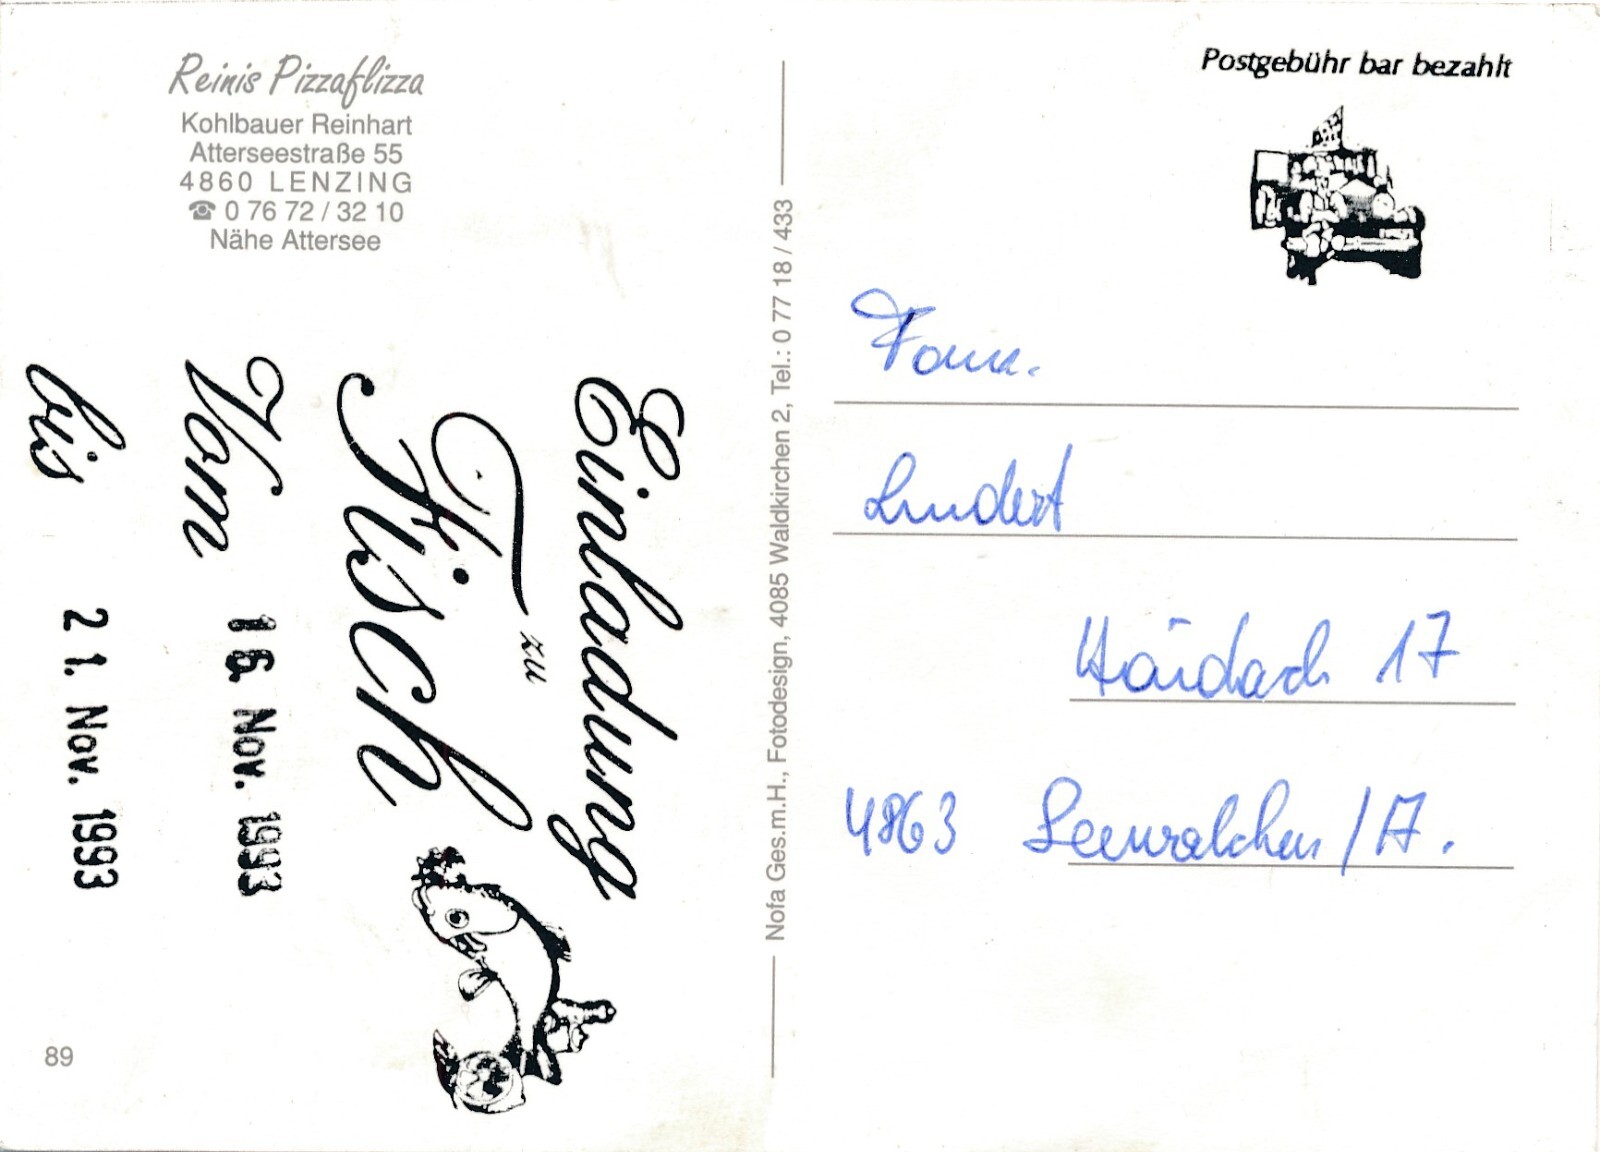 Reinis Pizzaflizza
Kohlbauer Reinhart
Atterseestraße 55
4860 LENZING
☎ 0 76 72 / 32 10
Nähe Attersee
Einladung
zu
Fisch
Vom 16. Nov. 1993
bis 21. Nov. 1993
89
Nofa Ges.m.H., Fotodesign, 4085 Waldkirchen 2, Tel.: 0 77 18 / 433
Postgebühr bar bezahlt
Fam.
Lindert
Haidach 17
4863 Seewalchen/A.